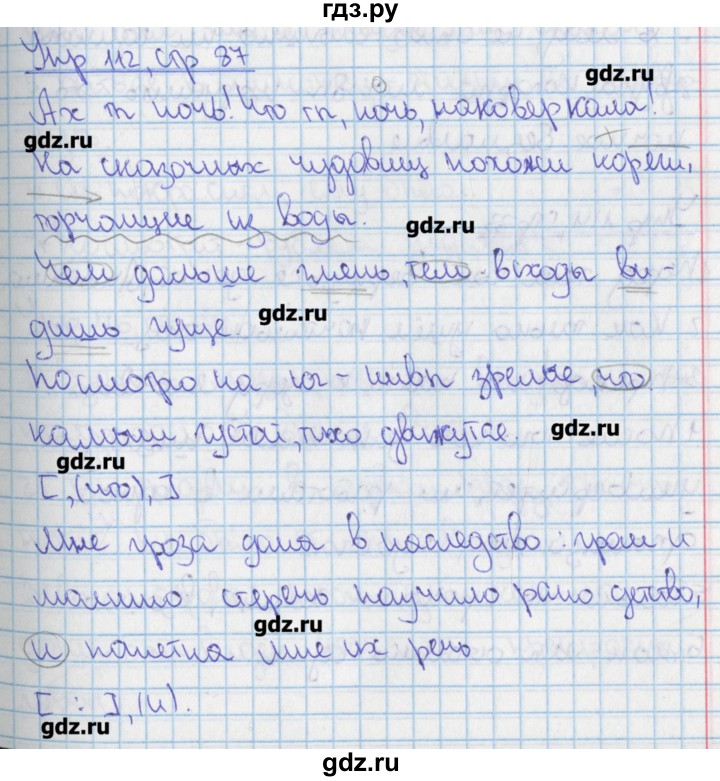 гдз.ру
Упр 112, стр 87
gdz.ru
Ах ты ночь! Что ты, ночь, наковеркала!
gdz.ru
На сказочных чудовищ похожи корени,
торчащие из воды.
gdz.ru
Чем дальше глянь, тем всходы ви-
gdz.ru
дишь гуще
Посмотрю на юг - нивы зрелые, что
камыш густой, тихо движутся.
gdz.ru
gdz.ru
[ ,(что), ]
Мне гроза дана в наследство: гром и
молния степень научило рано детство,
gdz.ru
и понятна мне их речь
[ : ], (и).
gdz.ru
gdz.ru